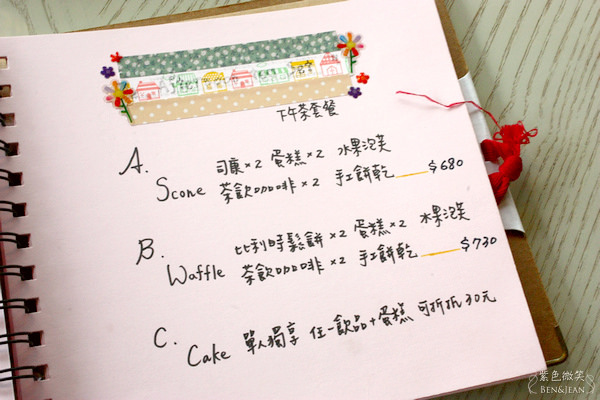 下午茶套餐
A. 司康×2 蛋糕×2 水果泡芙
Scone 茶飲咖啡×2 手工餅乾 $680
B. 比利時鬆餅×2 蛋糕×2 水果泡芙
Waffle 茶飲咖啡×2 手工餅乾 $730
C. 單人獨享 任一飲品+蛋糕 可折抵30元
Cake
紫色微笑
BEN&JEAN